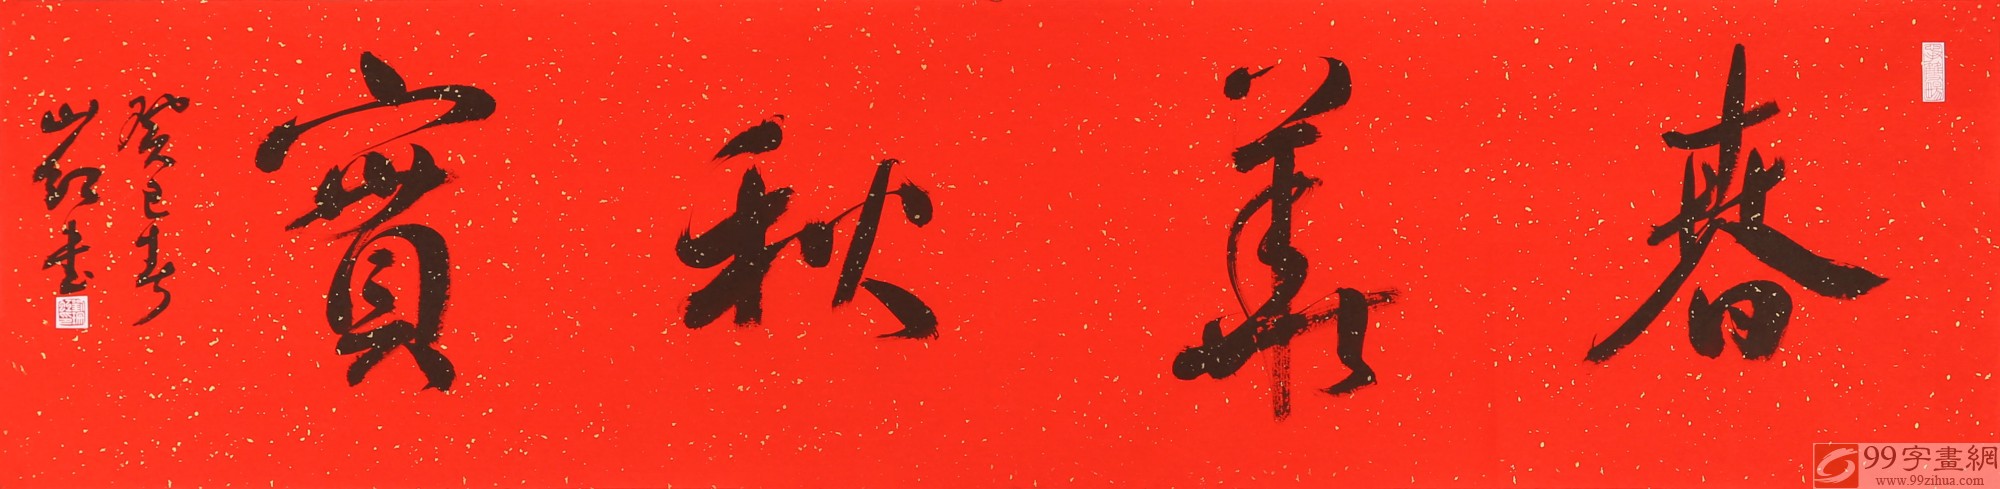 春華秋實
癸巳春
山
書
99字畫網
www.99zihua.com